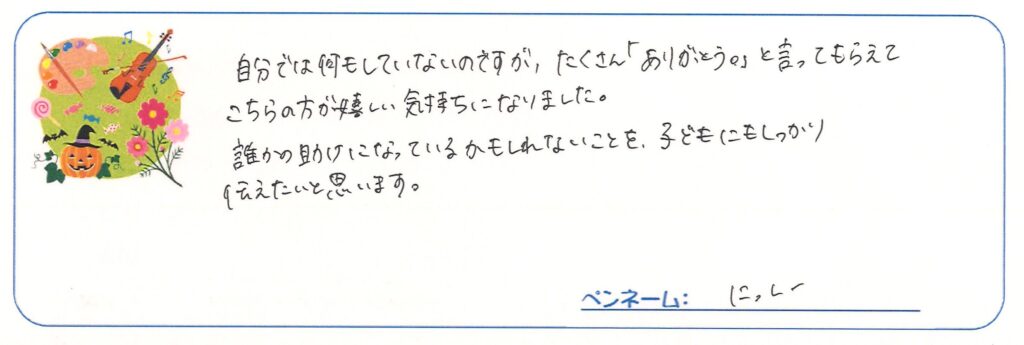 自分では何もしていないのですが、たくさん「ありがとう。」と言ってもらえて
こちらの方が嬉しい気持ちになりました。
誰かの助けになっているかもしれないことを、子どもにもしっかり
伝えたいと思います。
ペンネーム： にっしー